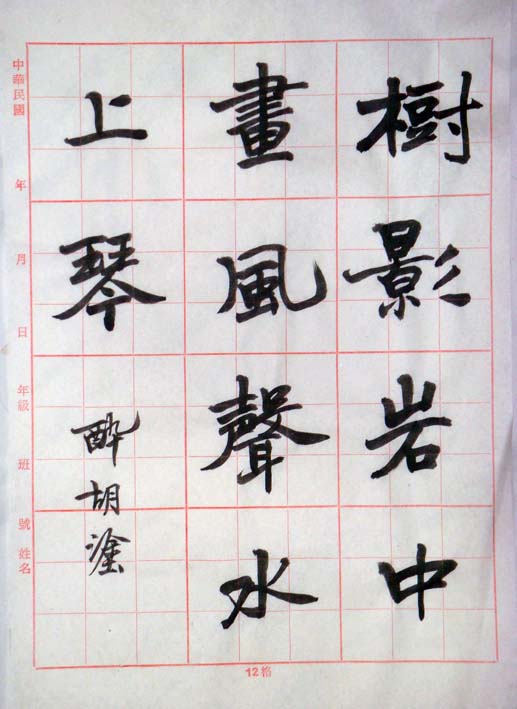 樹影岩中
畫風聲水
上琴
醉胡塗
中華民國 年 月 日 年級 班 號 姓名
12格